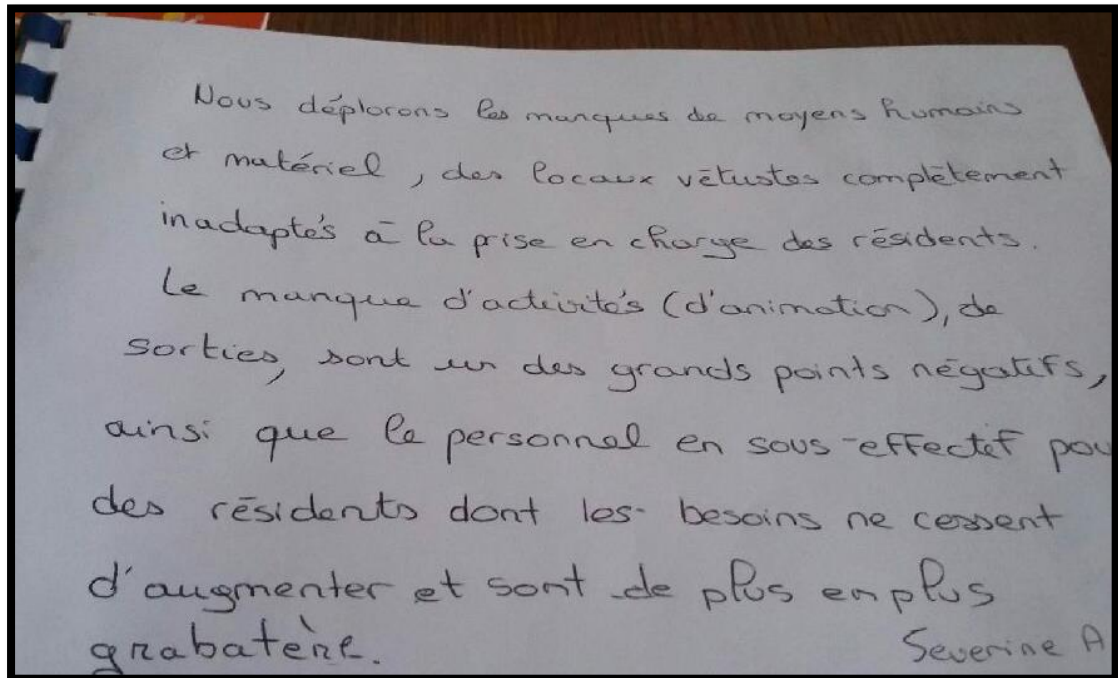 Nous déplorons les manques de moyens humains
et matériel, des locaux vétustes complètement
inadaptés à la prise en charge des résidents.
Le manque d'activités (d'animation), de
sorties, sont un des grands points négatifs,
ainsi que le personnel en sous-effectif pou
des résidents dont les besoins ne cessent
d'augmenter et sont de plus en plus
grabatère.
Severine A